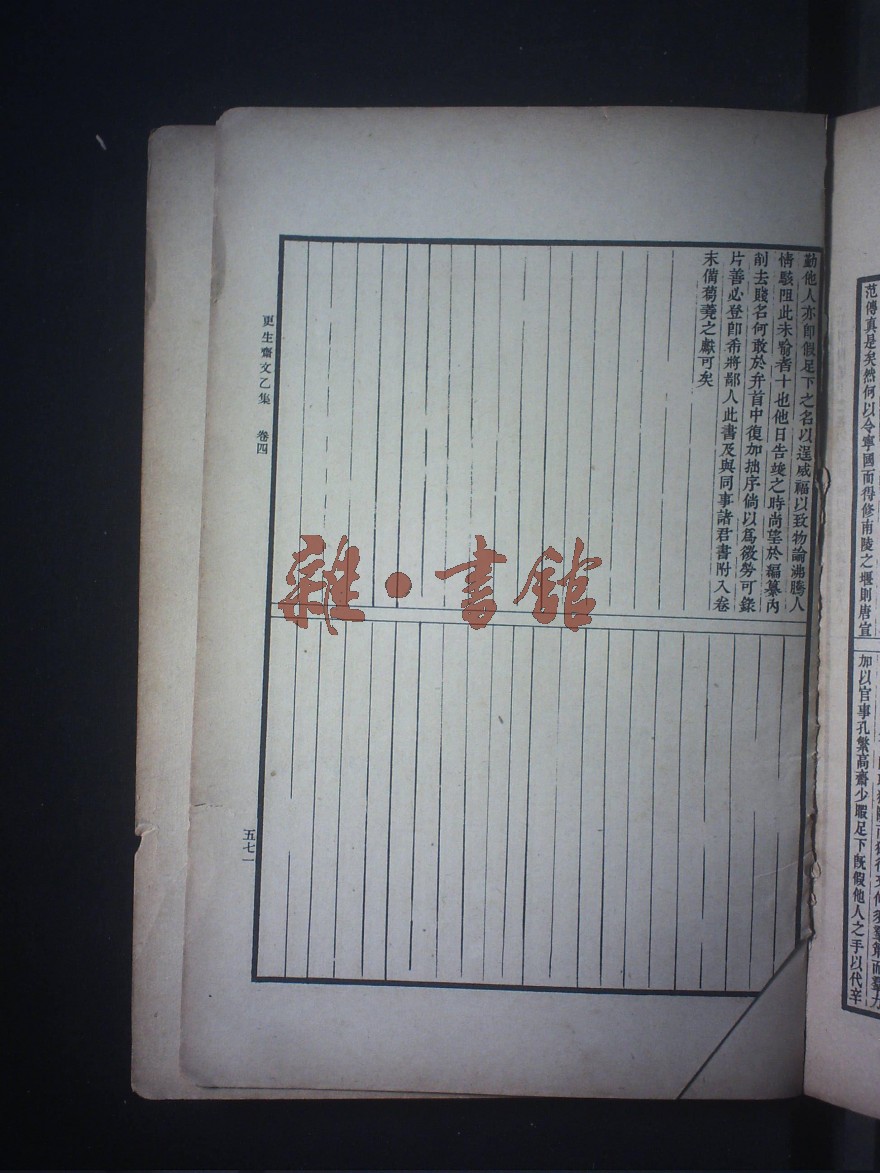 范傳真是矣然何以令寧國而得修南陵之堰則唐宣
加以官事孔繁高齋少暇足下既假他人之手以代辛
勤他人亦卽假足下之名以逞威福以致物論沸騰人
情駭阻此未喻者十也他日告竣之時尚望於編纂內
削去賤名何敢於弁首中復加拙序倘以爲微勞可錄
片善必登卽希將鄙人此書及與同事諸君書附入卷
末備芻蕘之獻可矣
更生齋文乙集 卷四
五七一
雜·書館